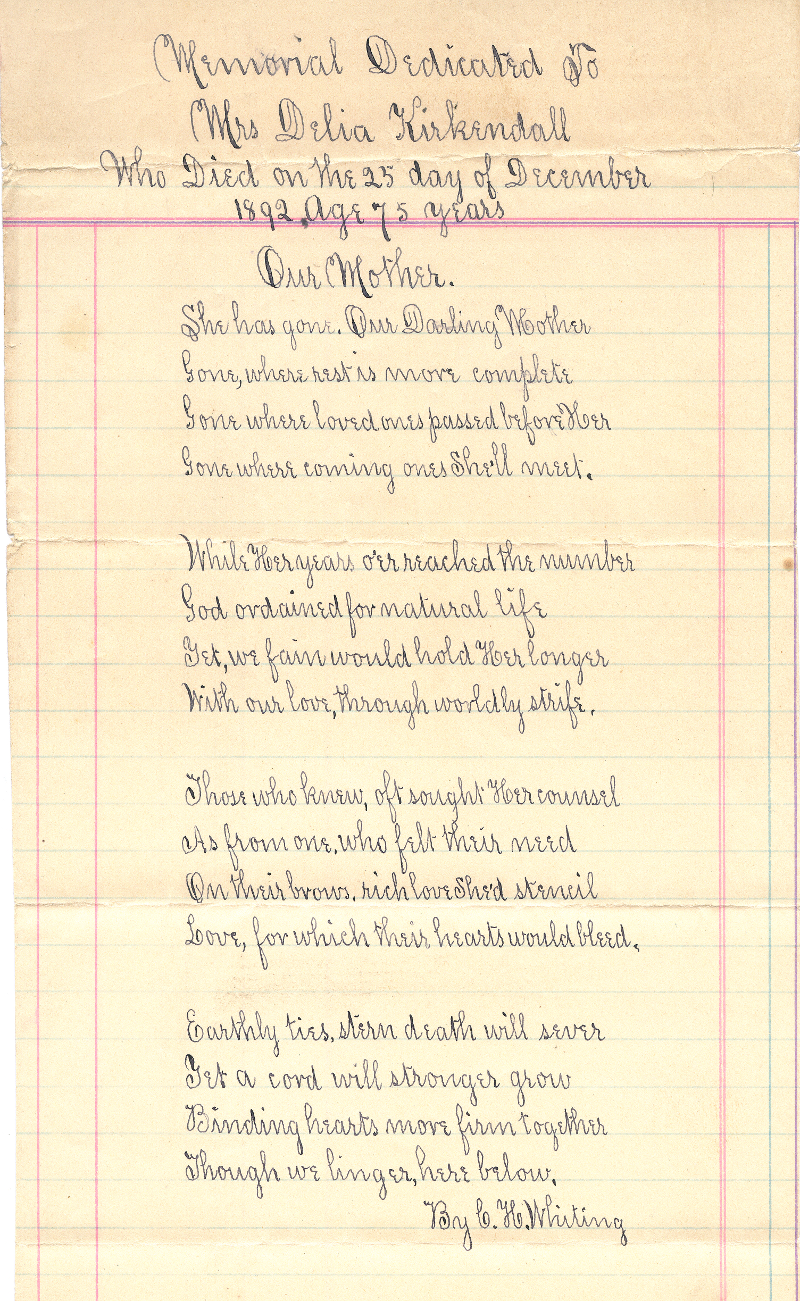 Memorial Dedicated To
Mrs Delia Kirkendall
Who Died on the 25 day of December
1892, Age 75 years
Our Mother.
She has gone. Our Darling Mother
Gone, where rest is more complete
Gone where loved ones passed before Her
Gone where coming ones She'll meet.
While Her years o'er reached the number
God ordained for natural life
Yet, we fain would hold Her longer
With our love, through worldly strife.
Those who knew, oft sought Her counsel
As from one, who felt their need
On their brows, rich love She'd stencil
Love, for which their hearts would bleed.
Earthly ties, stern death will sever
Yet a cord will stronger grow
Binding hearts more firm together
Though we linger, here below.
By C. H. Whiting